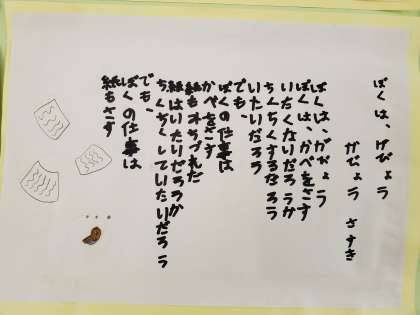 ぼくは、がびょう
がびょう さすき
ぼくは、がびょう
ぼくは、かべをさす
いたくないだろうか
ちくちくするだろう
いたいだろう
でも、
ぼくの仕事は
かべをさす
紙もオちつれだ
紙はいたいだろうか
ちくちくしていたいだろう
でも、
ぼくの仕事は
紙もさす